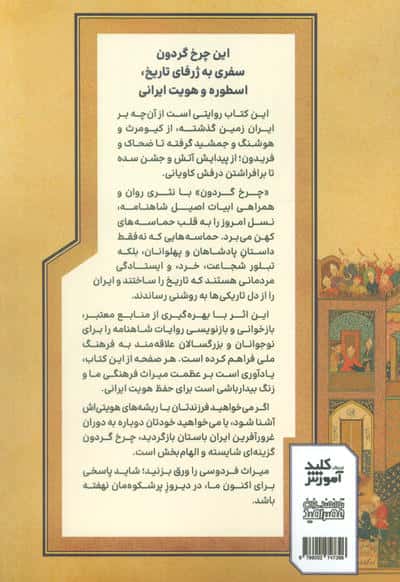 این چرخ گردون
سفری به ژرفای تاریخ،
اسطوره و هویت ایرانی
این کتاب روایتی است از آن‌چه بر
ایران زمین گذشته، از کیومرث و
هوشنگ و جمشید گرفته تا ضحاک و
فریدون؛ از پیدایش آتش و جشن سده
تا برافراشتن درفش کاویانی.
«چرخ گردون» با نثری روان و
همراهی ابیات اصیل شاهنامه،
نسل امروز را به قلب حماسه‌های
کهن می‌برد. حماسه‌هایی که نه‌فقط
داستان پادشاهان و پهلوانان، بلکه
تبلور شجاعت، خرد، و ایستادگی
مردمانی هستند که تاریخ را ساختند و ایران
را از دل تاریکی‌ها به روشنی رساندند.
این اثر با بهره‌گیری از منابع معتبر،
بازخوانی و بازنویسی روایات شاهنامه را برای
نوجوانان و بزرگسالان علاقه‌مند به فرهنگ
ملی فراهم کرده است. هر صفحه از این کتاب،
یادآوری است بر عظمت میراث فرهنگی ما و
زنگ بیدارباشی است برای حفظ هویت ایرانی.
اگر می‌خواهید فرزندتان با ریشه‌های هویتی‌اش
آشنا شود، یا می‌خواهید خودتان دوباره به دوران
غرورآفرین ایران باستان بازگردید، چرخ گردون
گزینه‌ای شایسته و الهام‌بخش است.
میراث فردوسی را ورق بزنید؛ شاید پاسخی
برای اکنون ما، در دیروزِ پرشکوه‌مان نهفته
باشد.
کلید
آموزش